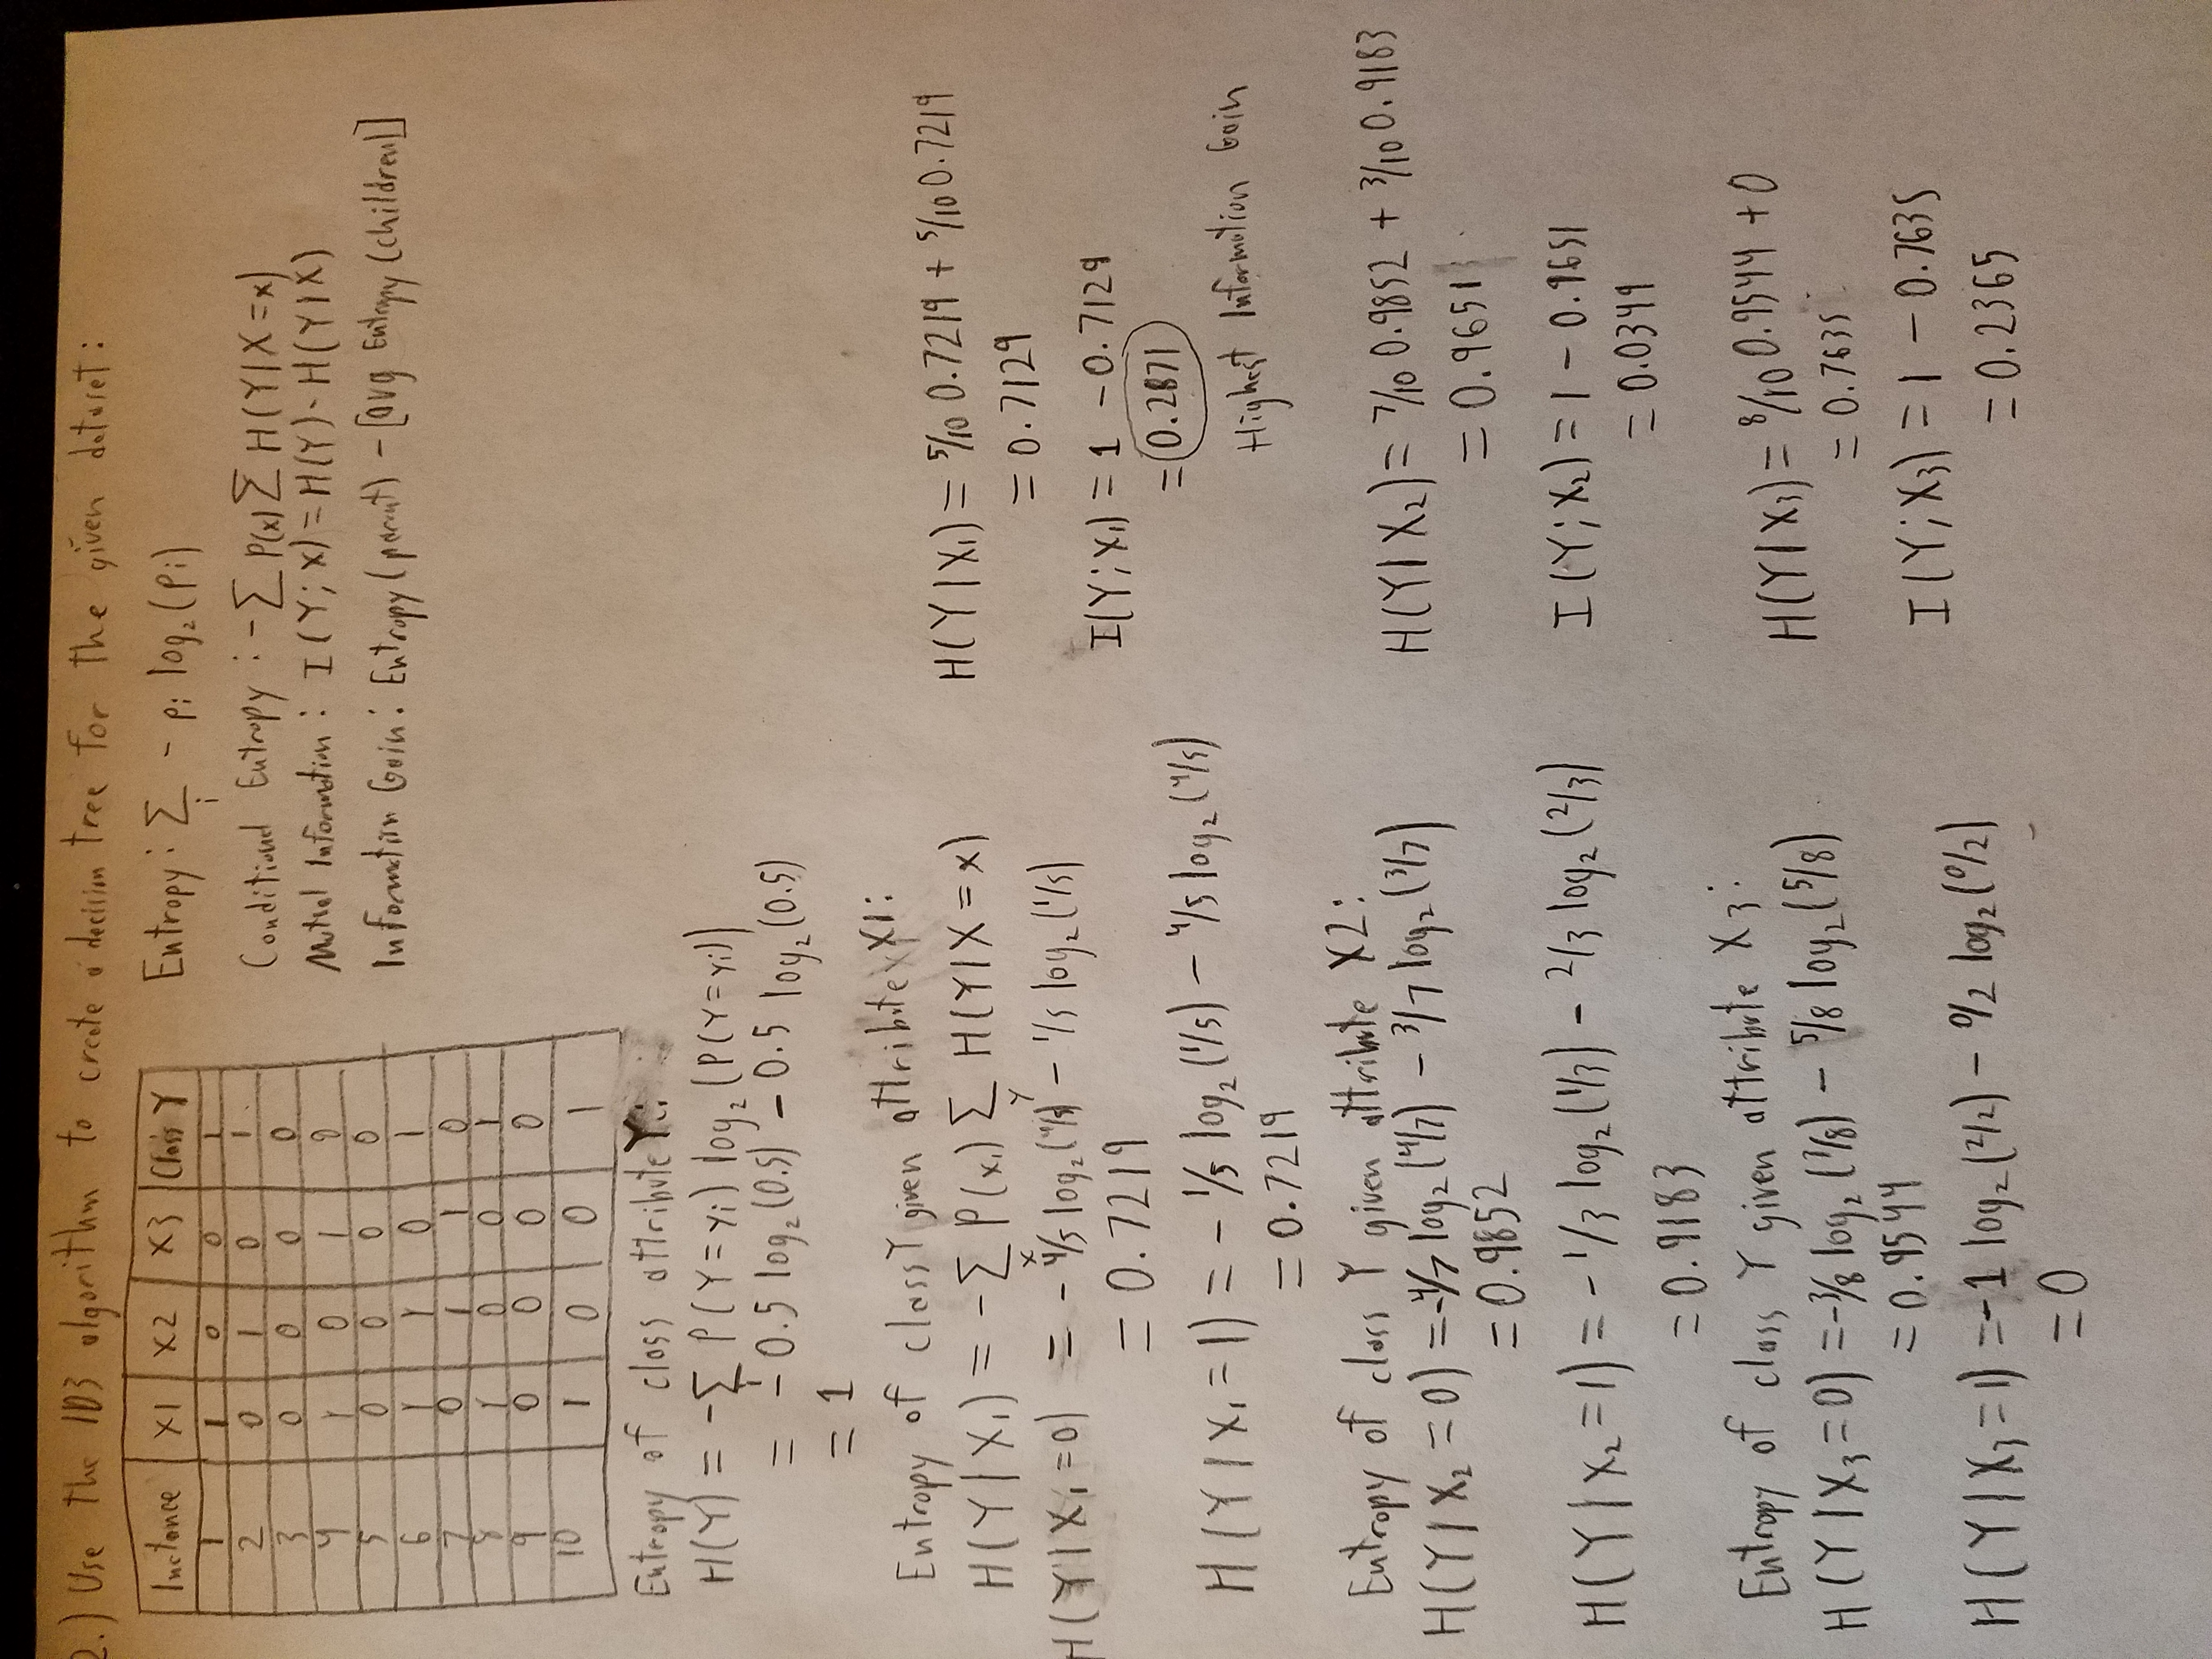 2.) Use the ID3 algorithm to create a decision tree for the given dataset:
Instance X1 X2 X3 Class Y
1 1 0 0 1
2 0 1 0 1
3 0 0 0 0
4 1 0 1 0
5 0 0 0 0
6 1 1 0 1
7 0 1 1 0
8 1 0 0 1
9 0 0 0 0
10 1 0 0 1
Entropy: ∑i - pi log₂(pi)
Conditional Entropy: -∑ P(x) ∑ H(Y|X=x)
Mutual Information: I(Y; X) = H(Y) - H(Y|X)
Information Gain: Entropy(parent) - [avg Entropy(children)]
Entropy of class attribute Y:
H(Y) = -∑i P(Y=yi) log₂(P(Y=yi))
= -0.5 log₂(0.5) - 0.5 log₂(0.5)
= 1
Entropy of class Y given attribute X1:
H(Y|X₁) = -∑x P(x₁) ∑y H(Y|X=x)
H(Y|X₁=0) = -4/5 log₂(4/5) - 1/5 log₂(1/5)
= 0.7219
H(Y|X₁=1) = -1/5 log₂(1/5) - 4/5 log₂(4/5)
= 0.7219
H(Y|X₁) = 5/10 0.7219 + 5/10 0.7219
= 0.7129
I(Y;X₁) = 1 - 0.7129
= 0.2871
Highest Information Gain
Entropy of class Y given attribute X2:
H(Y|X₂=0) = -4/7 log₂(4/7) - 3/7 log₂(3/7)
= 0.9852
H(Y|X₂=1) = -1/3 log₂(1/3) - 2/3 log₂(2/3)
= 0.9183
H(Y|X₂) = 7/10 0.9852 + 3/10 0.9183
= 0.9651
I(Y;X₂) = 1 - 0.9651
= 0.0349
Entropy of class Y given attribute X3:
H(Y|X₃=0) = -3/8 log₂(3/8) - 5/8 log₂(5/8)
= 0.9544
H(Y|X₃=1) = -1 log₂(2/2) - 0/2 log₂(0/2)
= 0
H(Y|X₃) = 8/10 0.9544 + 0
= 0.7635
I(Y;X₃) = 1 - 0.7635
= 0.2365